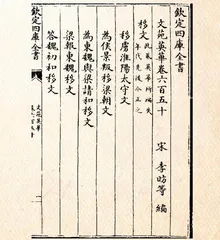 欽定四庫全書
文苑英華卷六百五十
宋 李昉等 編
移文
移虜淮陽太守文
為侯景叛移梁朝文
為東魏與梁請和移文
梁報東魏移文
答魏初和移文
欽定四庫全書
文苑英華